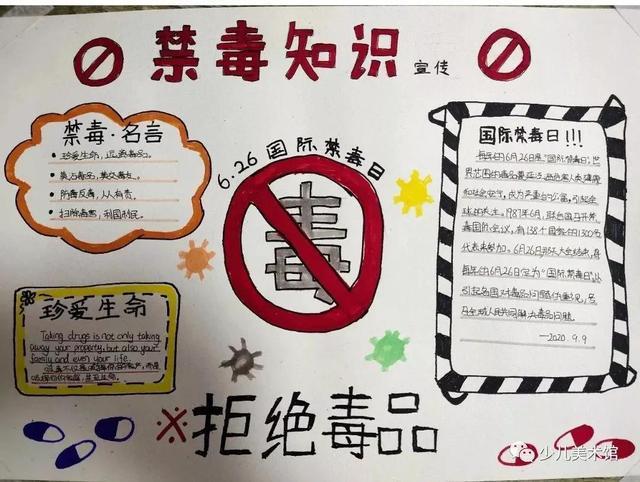 禁毒知识 宣传
禁毒·名言
• 珍爱生命，远离毒品。
• 莫沾毒品，莫交毒友。
• 防毒反毒，人人有责。
• 扫除毒害，利国利民。
6.26国际禁毒日
毒
国际禁毒日!!!
每年的6月26日是“国际禁毒日”，世
界范围的毒品蔓延泛滥危害人类健康
和社会安宁，成为严重的公害，引起全
球的关注。1987年6月，联合国召开禁
毒国际会议，有138个国家的3000名
代表来参加。6月26日那天大会结束，将
每年的6月26日定为“国际禁毒日”，以
引起各国对毒品问题的重视，号
召全球人民共同解决毒品问题。
—2020.9.9
珍爱生命
Taking drugs is not only taking
away your property, but also your
family and even your life.
※拒绝毒品
少儿美术馆